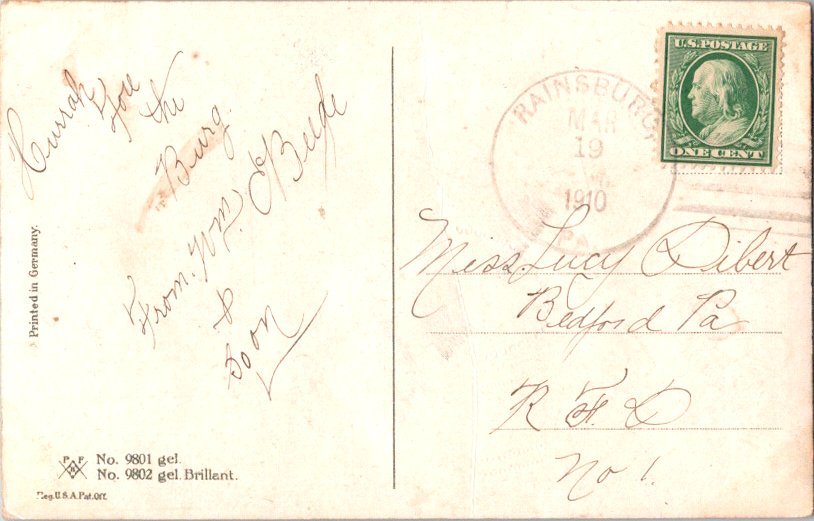 Hurrah
You
the
Burg.
From. Wm.
&
Soon
Printed in Germany.
P F
No. 9801 gel.
No. 9802 gel. Brillant.
Reg. U.S.A. Pat. Off.
U.S. POSTAGE
ONE CENT
RAINSBURG
MAR
19
1910
PA
Miss. Lucy Dibert
Bedford Pa
R F. D
No 1.